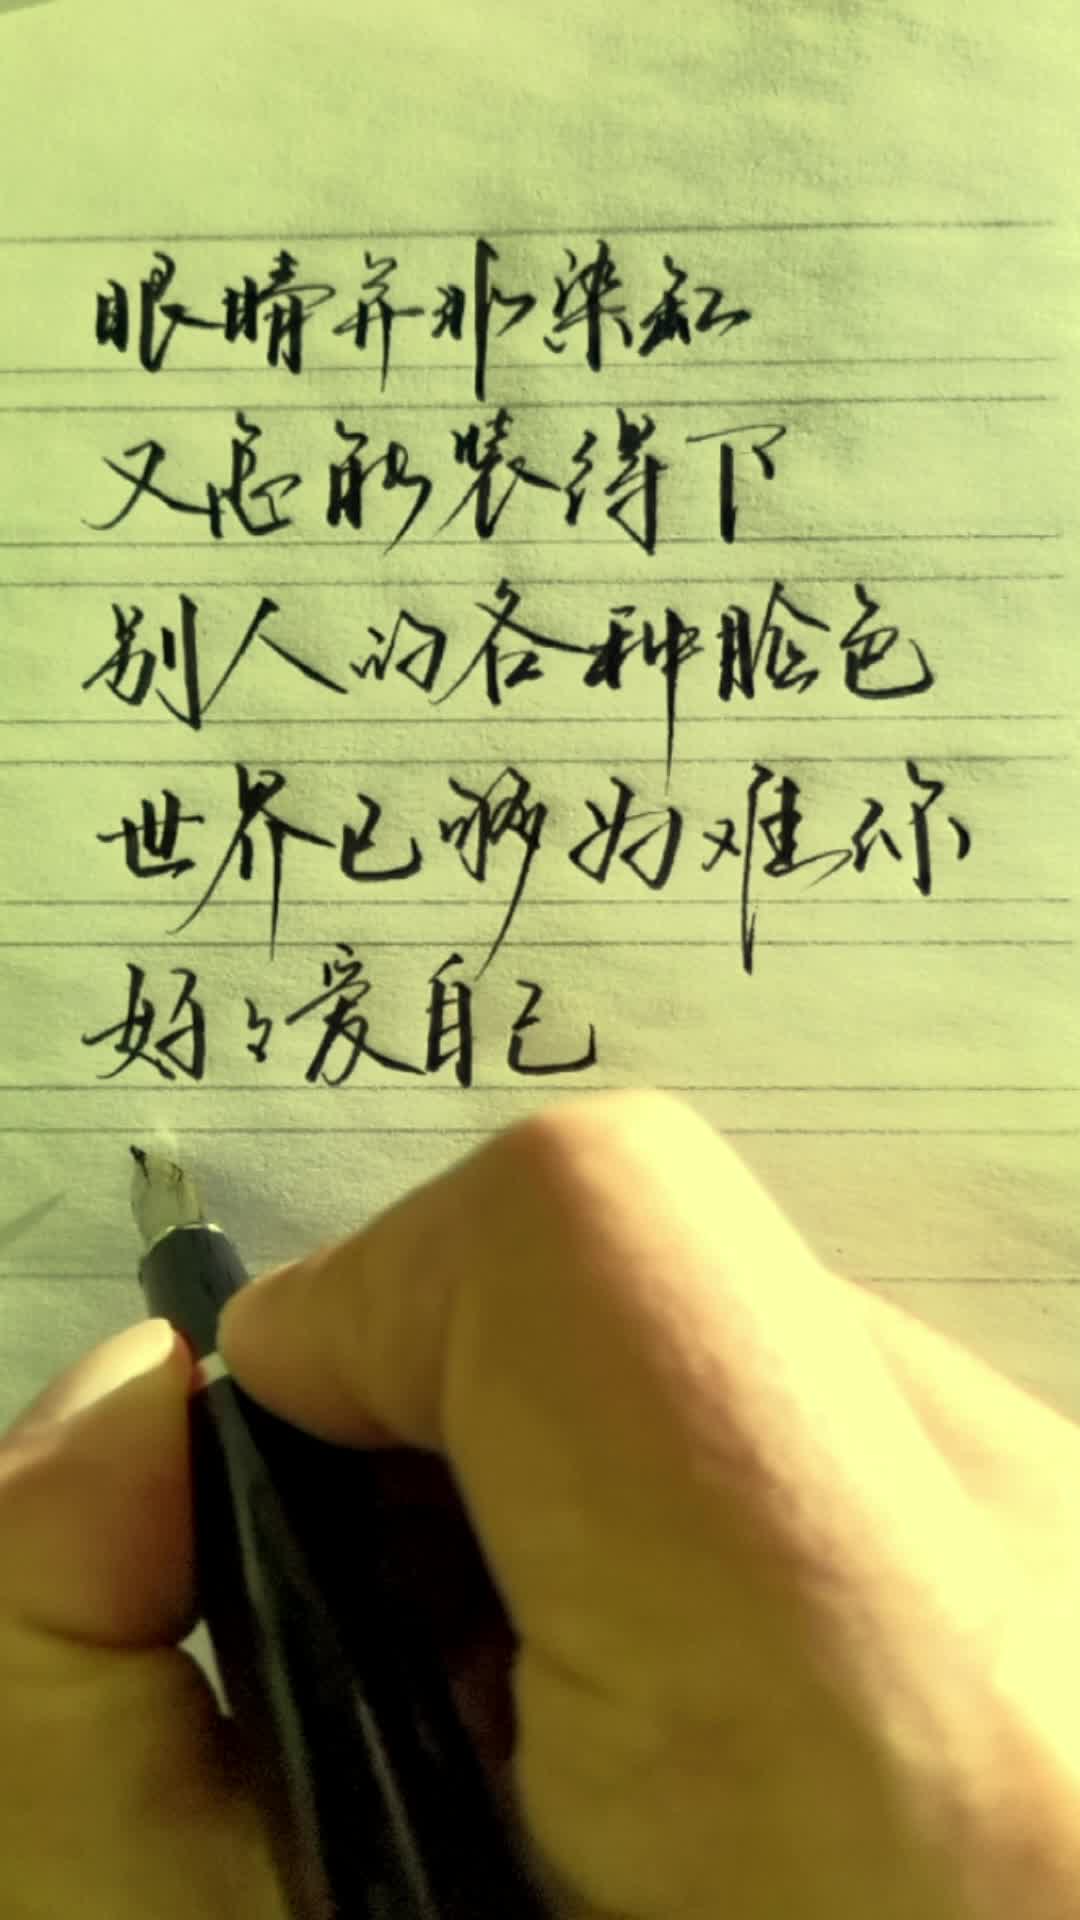 眼睛并非染缸
又怎能装得下
别人的各种脸色
世界已够为难你
好々爱自己